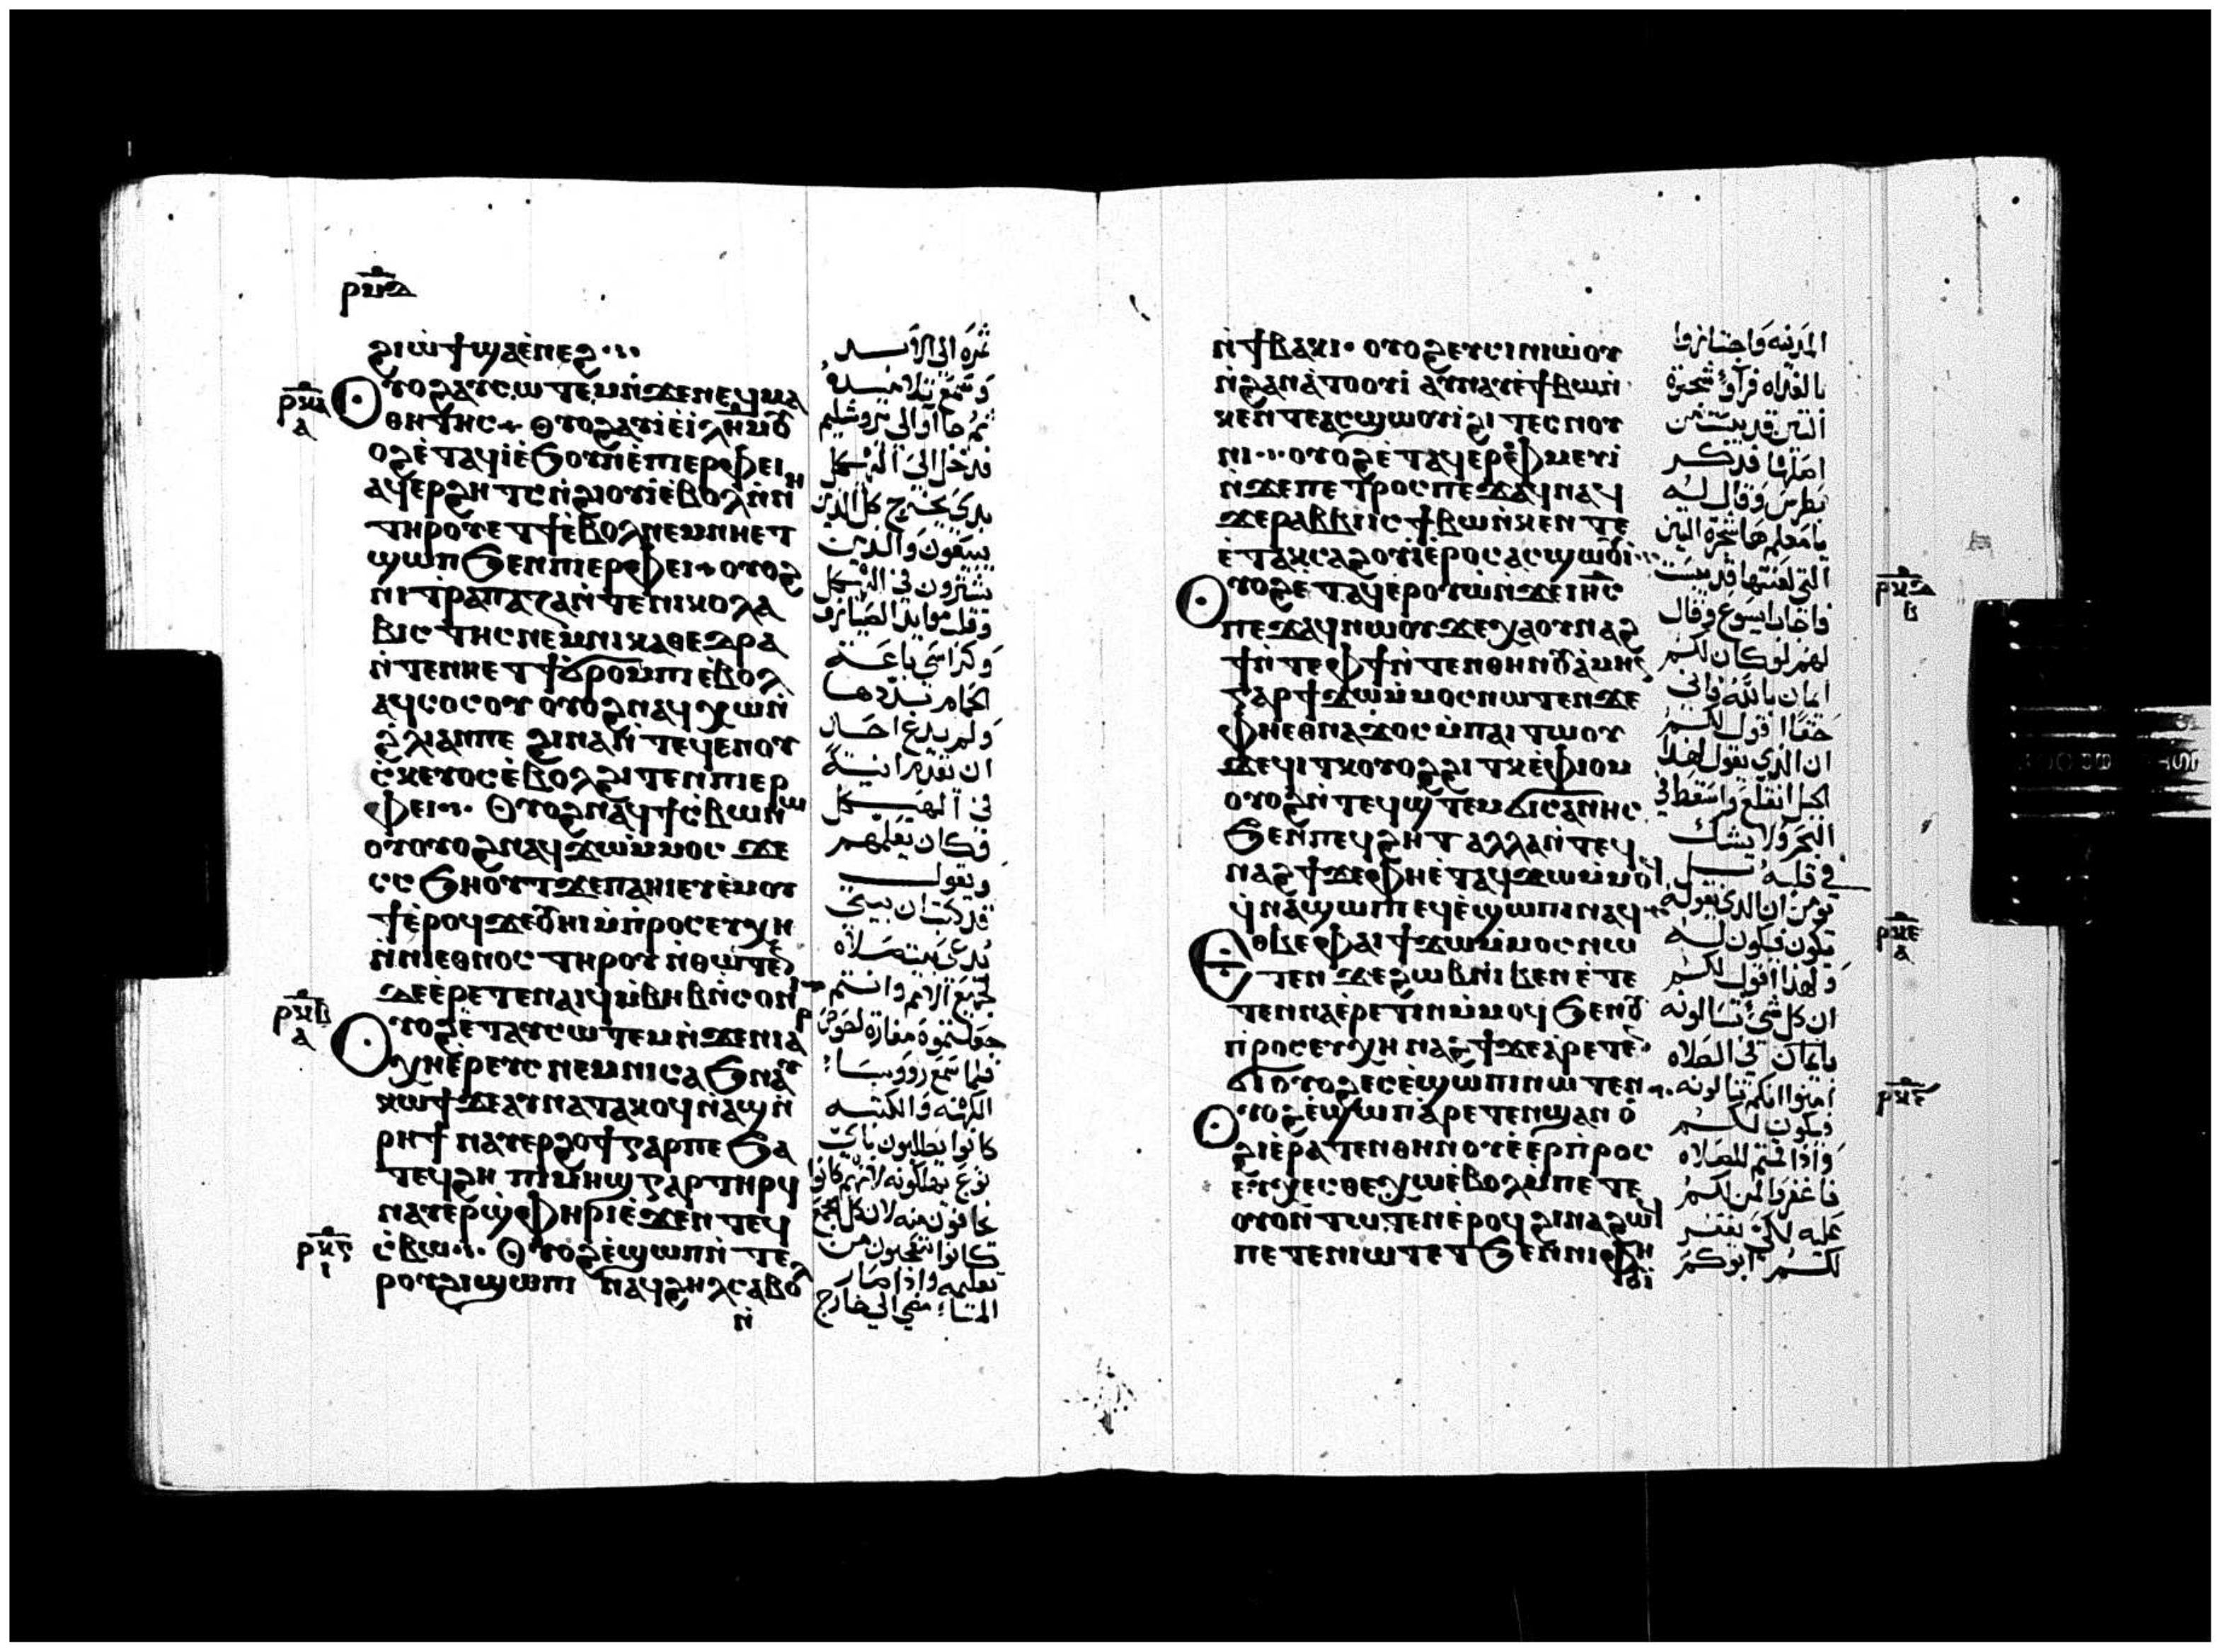 ⲣⲙⲇ
ϩⲓⲱϯ ϣⲁⲉ̀ⲛⲉϩ
ⲣⲕⲁ
ⲁ
ⲟⲩⲟϩ ⲁⲩⲥⲱⲧⲉⲙ ⲛ̀ϫⲉⲛⲉϥⲙⲁ
ⲑⲏⲧⲏⲥ ⲟⲩⲟϩ ⲁⲩⲓ̀ ⲉ̀ⲓⲗⲏⲙ ⲟⲩ
ⲟϩ ⲉ̀ⲧⲁϥⲓ̀ ⲉ̀ϧⲟⲩⲛ ⲉ̀ⲡⲓⲉⲣⲫⲉⲓ
ⲁϥⲉⲣϩⲏⲧⲥ ⲛ̀ϩⲓⲟⲩⲓ̀ ⲉ̀ⲃⲟⲗ ⲛ̀ⲛⲏ
ⲧⲏⲣⲟⲩ ⲉⲧϯ ⲉ̀ⲃⲟⲗ ⲛⲉⲙ ⲛⲏⲉⲧ
ϣⲱⲡ ϧⲉⲛ ⲡⲓⲉⲣⲫⲉⲓ ⲟⲩⲟϩ
ⲛⲓⲧⲣⲁⲡⲁⲍⲁ ⲛ̀ⲧⲉ ⲛⲓⲕⲟⲗⲗⲁ
ⲃⲓⲥⲧⲏⲥ ⲛⲉⲙ ⲛⲓⲕⲁⲑⲉⲇⲣⲁ
ⲛ̀ⲧⲉ ⲛⲏⲉⲧϯ ϭⲣⲟⲙⲡⲓ ⲉ̀ⲃⲟⲗ
ⲁϥⲥⲟⲥⲟⲩ ⲟⲩⲟϩ ⲛⲁϥⲭⲱ ⲛ̀
ϩ̀ⲗⲓ ⲁⲛ ⲡⲉ ϩⲓⲛⲁ ⲛ̀ⲧⲉϥⲉⲛ ⲟⲩ
ⲥ̀ⲕⲉⲩⲟⲥ ⲉ̀ⲃⲟⲗ ϩⲓⲧⲉⲛ ⲡⲓⲉⲣ
ⲫⲉⲓ ⲟⲩⲟϩ ⲛⲁϥϯⲥ̀ⲃⲱ ⲛⲱ
ⲟⲩ ⲟⲩⲟϩ ⲛⲁϥϫⲱ ⲙ̀ⲙⲟⲥ ϫⲉ
ⲥ̀ⲥϧⲏⲟⲩⲧ ϫⲉ ⲡⲁⲏⲓ ⲉⲩⲉ̀ⲙⲟⲩ
ϯ ⲉ̀ⲣⲟϥ ϫⲉ ⲟⲩⲏⲓ ⲙ̀ⲡⲣⲟⲥⲉⲩⲭⲏ
ⲛ̀ⲛⲓⲉⲑⲛⲟⲥ ⲧⲏⲣⲟⲩ ⲛ̀ⲑⲱⲧⲉⲛ
ⲇⲉ ⲉ̀ⲣⲉⲧⲉⲛⲁⲓϥ ⲙ̀ⲃⲏⲃ ⲛ̀ⲥⲟⲛⲓ
ⲣⲕⲃ
ⲁ
ⲟⲩⲟϩ ⲉ̀ⲧⲁⲩⲥⲱⲧⲉⲙ ⲛ̀ϫⲉ ⲛⲓⲁⲣ
ⲭⲏⲉ̀ⲣⲉⲩⲥ ⲛⲉⲙ ⲛⲓⲥⲁϧ ⲛⲁⲩ
ⲕⲱϯ ϫⲉ ⲁⲩⲛⲁⲧⲁⲕⲟϥ ⲛ̀ⲁϣ ⲛ̀
ⲣⲏϯ ⲛⲁⲩⲉⲣϩⲟϯ ⲅⲁⲣ ⲡⲉ ϧⲁ
ⲧⲉϥϩⲏ ⲡⲓⲙⲏϣ ⲅⲁⲣ ⲧⲏⲣϥ
ⲛⲁⲩⲉⲣϣ̀ⲫⲏⲣⲓ ⲉ̀ϫⲉⲛ ⲧⲉϥ
ⲣⲕⲅ
ⲓ
ⲥ̀ⲃⲱ ⲟⲩⲟϩ ⲉ̀ϣⲱⲡ ⲛ̀ⲧⲉ
ⲣⲟⲩϩⲓ ϣⲱⲡⲓ ⲛⲁϥϩⲏⲗ ⲥⲁⲃⲟⲗ
ⲛ̀
ثمره الى الابد
وسمع تلاميذه
ثم جاوا الى يروشليم
فدخل الى الهيكل
بدى يخرج كل الذين
يبيعون والذين
يشترون في الهيكل
وقلب موايد الصيارف
وكراسي باعة
الحمام بددها
ولم يدع احد
ان يقدم انية
في الهيكل
فكان يعلمهم
ويقول
قد كتب ان بيتي
يدعى بيت صلاه
لجميع الامم وانتم
جعلتموه مغارة لصوص
فلما سمع رووسا
الكهنه والكتبه
كانوا يطلبون باي
نوع يهلكونه لانهم كانوا
يخافون منه لان كل الجمع
كانوا يتعجبون من
تعليمه واذا صار
المسا مضى الى خارج
ⲛ̀ϯⲃⲁⲕⲓ ⲟⲩⲟϩ ⲉⲩⲥⲓⲛⲓⲱⲟⲩ
ⲛ̀ϩⲁⲛⲁ̀ⲧⲟⲟⲩⲓ̀ ⲁⲩⲛⲁⲩ ⲉ̀ϯⲃⲱ ⲛ̀
ⲕⲉⲛⲧⲉ ⲁⲥϣⲱⲟⲩⲓ ϩⲓ ⲧⲉⲥⲛⲟⲩ
ⲛⲓ ⲟⲩⲟϩ ⲉ̀ⲧⲁϥⲉⲣⲫⲙⲉⲩⲓ̀
ⲛ̀ϫⲉ ⲡⲉⲧⲣⲟⲥ ⲡⲉϫⲁϥ ⲛⲁϥ
ϫⲉ ⲣⲁⲃⲃⲓ ⲓⲥ ϯⲃⲱ ⲛ̀ⲕⲉⲛⲧⲉ
ⲉ̀ⲧⲁⲕⲥⲁϩⲟⲩⲓ̀ ⲉ̀ⲣⲟⲥ ⲁⲥϣⲱⲟⲩⲓ
ⲟⲩⲟϩ ⲉ̀ⲧⲁϥⲉⲣⲟⲩⲱ̀ ⲛ̀ϫⲉ ⲓⲏⲥ
ⲣⲕⲇ
ⲃ
ⲡⲉϫⲁϥ ⲛⲱⲟⲩ ϫⲉ ⲭⲁ ⲟⲩⲛⲁϩ
ϯ ⲛ̀ⲧⲉ ⲫϯ ⲛ̀ⲧⲉⲛⲑⲏⲛⲟⲩ ⲁ̀ⲙⲏⲛ
ⲅⲁⲣ ϯϫⲱ ⲙ̀ⲙⲟⲥ ⲛⲱⲧⲉⲛ ϫⲉ
ⲫⲏⲉⲑⲛⲁϫⲟⲥ ⲙ̀ⲡⲁⲓⲧⲱⲟⲩ
ϫⲉ ϥⲓⲧⲕ ⲟⲩⲟϩ ϩⲓⲧⲕ ⲉ̀ⲫⲓⲟⲙ
ⲟⲩⲟϩ ⲛ̀ⲧⲉϥϣⲧⲉⲙϭⲓⲥⲁⲛⲏⲥ
ϧⲉⲛ ⲡⲉϥϩⲏⲧ ⲁⲗⲗⲁ ⲛ̀ⲧⲉϥ
ⲛⲁϩϯ ϫⲉ ⲫⲏⲉ̀ⲧⲁϥϫⲱ ⲙ̀ⲙⲟ
ϥ ⲛⲁϣⲱⲡⲓ ⲉϥⲉ̀ϣⲱⲡⲓ ⲛⲁϥ
ⲣⲕⲉ
ⲁ
ⲉⲑⲃⲉ ⲫⲁⲓ ϯϫⲱ ⲙ̀ⲙⲟⲥ ⲛⲱ
ⲧⲉⲛ ϫⲉ ϩⲱⲃ ⲛⲓⲃⲉⲛ ⲉ̀ⲧⲉ
ⲧⲉⲛⲛⲁⲉ̀ⲣⲉⲧⲓⲛ ⲙ̀ⲙⲟϥ ϧⲉⲛ ⲟⲩ
ⲡ̀ⲣⲟⲥⲉⲩⲭⲏ ⲛⲁϩϯ ϫⲉ ⲁ̀ⲣⲉⲧⲉⲛ
ϭⲓ ⲟⲩⲟϩ ⲉⲥⲉ̀ϣⲱⲡⲓ ⲛⲱⲧⲉⲛ
ⲣⲕⲋ
ⲟⲩⲟϩ ⲉ̀ϣⲱⲡ ⲁ̀ⲣⲉⲧⲉⲛϣⲁⲛⲟ̀
ϩⲓ ⲉ̀ⲣⲁⲧⲉⲛⲑⲏⲛⲟⲩ ⲉ̀ⲉⲣⲡ̀ⲣⲟⲥ
ⲉⲩⲭⲉⲥⲑⲉ ⲭⲱ ⲉ̀ⲃⲟⲗ ⲙ̀ⲡⲉⲧⲉ
ⲟⲩⲟⲛⲧⲱⲧⲉⲛ ⲉ̀ⲣⲟϥ ϩⲓⲛⲁ ϩⲱϥ
ⲡⲉⲧⲉⲛⲓⲱⲧ ⲉⲧϧⲉⲛ ⲛⲓⲫⲏ
ⲟⲩⲓ̀
المدينه واجتازوا
بالغداه فراوا شجرة
التين قد يبست من
اصلها فذكر
بطرس وقال له
يا معلم ها شجرة التين
التي لعنتها قد يبست
فاجاب ايسوع وقال
لهم لو كان لكم
ايمان بالله فاني
حقا اقول لكم
ان الذي يقول لهذا
الجبل انقلع واسقط في
البحر ولا يشك
في قلبه بل
يومن ان الذي يقوله
يكون فيكون له
ولهذا اقول لكم
ان كل شي تسالونه
بايمان في الصلاه
امنوا انكم تنالونه
فيكون لكم
واذا قمتم للصلاه
فاغفروا لمن لكم
عليه لكي يغفر
لكم ابوكم